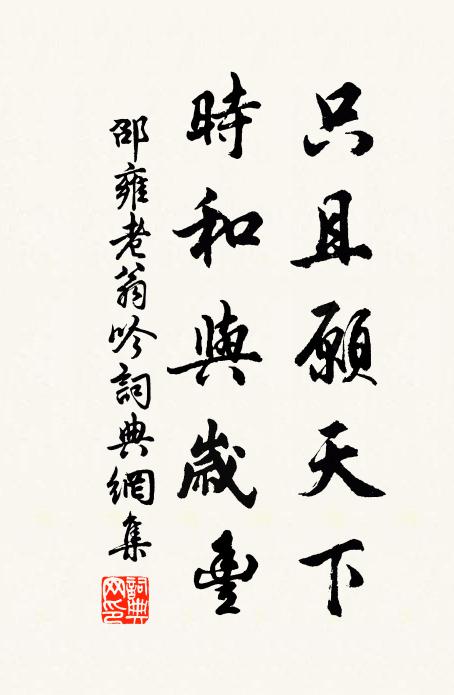 只且願天下
時和與歲豐
邵雍老翁吟詞典網集
詞典網印